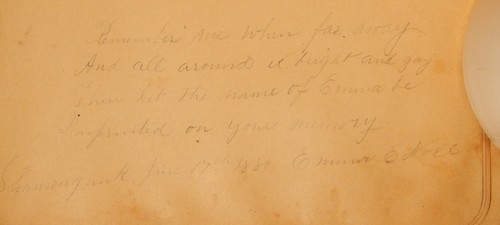 Remember me when far away
And all around is bright and gay
Then let the name of Emma be
Imprinted on your memory.
June 17th 1881 Emma E